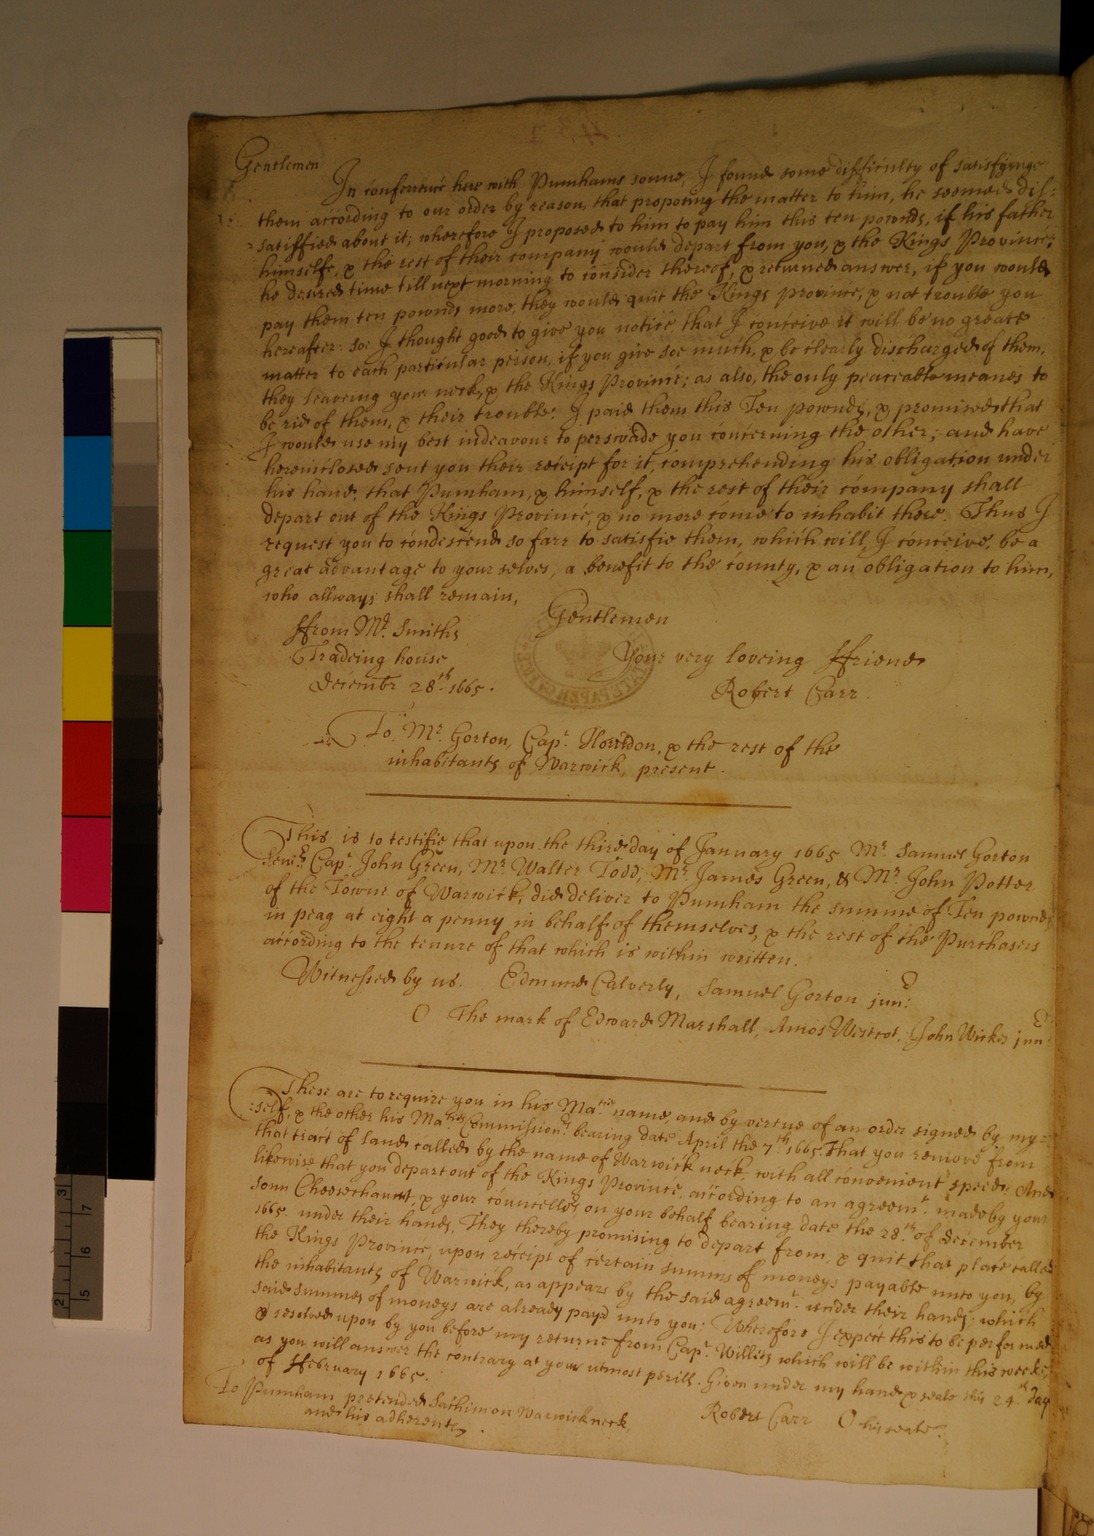 Gentlemen
In conference here with Pumhams sonne, I found some difficulty of satisfyinge
them according to our order by reason, that proposing the matter to him, he seemed dis=
=satisffied about it; wherefore I proposed to him to pay him this ten pownds, if his father
himselfe, & the rest of their company would depart from you, & the Kings Province;
he desired time till next morning to consider thereof, & returned answer, if you would
pay them ten pownds more, they would quit the Kings Province, & not trouble you
hereafter: soe I thought good to give you notice that I conceive it will be no greate
matter to each particular person, if you give soe much, & be clearly discharged of them,
they leaveing your neck, & the Kings Province; as also, the only peaceable meanes to
be rid of them, & their trouble. I paid them this Ten pownds, & promised, that
I would use my best indeavour to perswade you concerning the other; and have
hereinclosed sent you their receipt for it, comprehending his obligation under
his hand, that Pumham, & himself, & the rest of their company shall
depart out of the Kings Province, & no more come to inhabit there. Thus I
request you to condescend so farr to satisfie them, which will, I conceive, be a
great advantage to your selves, a benefit to the county, & an obligation to him,
who allways shall remain,
Gentlemen
ffrom Mr. Smiths
Tradeing house
Your very loveing ffriend
December 28th. 1665.
Robert Carr.
To Mr. Gorton, Capt. Houldon, & the rest of the
inhabitants of Warwick, present.
This is to testifie that upon the third day of January 1665 Mr. Samuel Gorton
Senr. Capt. John Green, Mr. Walter Todd, Mr. James Green, & Mr. John Potter
of the Towne of Warwick, did deliver to Pumham the summe of Ten pownds
in peag at eight a penny in behalf of themselves, & the rest of the Purchasers
according to the tenure of that which is within written.
Witnessed by us. Edmund Calverly, Samuel Gorton junr.
O The mark of Edward Marshall, Amos Westcot, John Wickes junr.
These are to require you in his Maties name, and by vertue of an order signed by my=
=self, & the other his Maties Commissionrs bearing date April the 7th 1665. That you remove from
that tract of land called by the name of Warwick neck, with all convenient speed; And
likewise that you depart out of the Kings Province, according to an agreemt. made by your
sonn Cheesechaunt, & your councellrs on your behalf bearing date the 28th. of December
1665. under their hands, They thereby promising to depart from, & quit that place called
the Kings Province, upon receipt of certain summs of moneys payable unto you, by
the inhabitants of Warwick, as appears by the said agreemt. under their hands; which
said summes of moneys are already payd unto you; Wherefore I expect this to be performed
& resolved upon by you before my returne from Capt. Willets which will be within this weeke,
as you will answer the contrary at your utmost perill. Given under my hand & seale this 24th day
of ffebruary 1665.
To Pumham pretended Sachim on Warwick neck,
and his adherents.
Robert Carr O his seale.